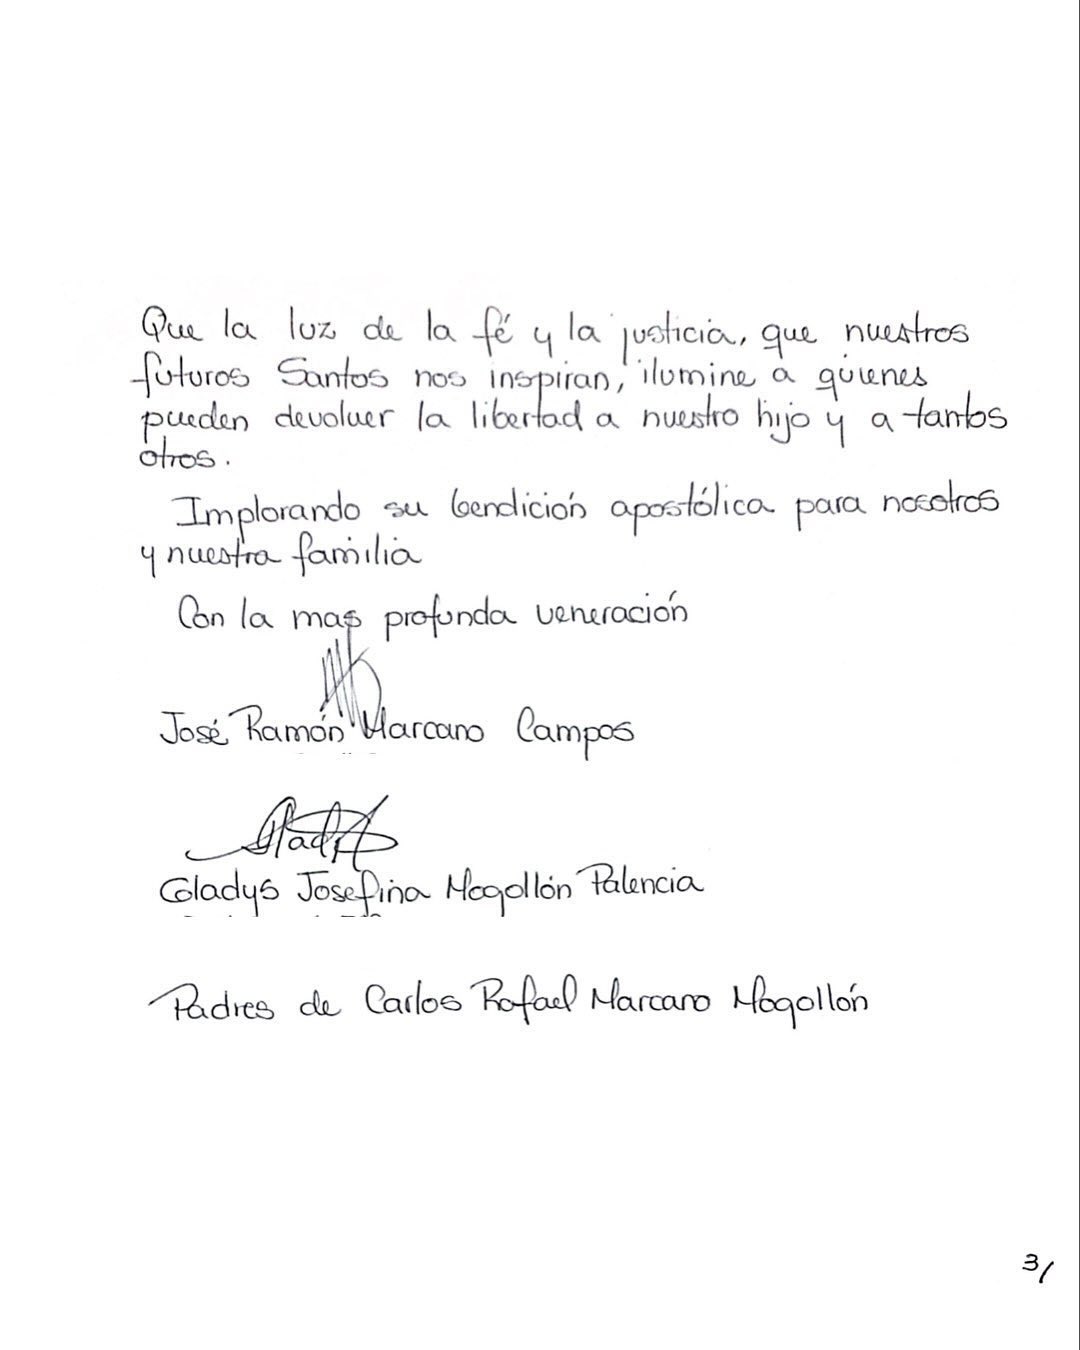 Que la luz de la fé y la justicia, que nuestros
futuros Santos nos inspiran, ilumine a quienes
pueden devolver la libertad a nuestro hijo y a tantos
otros.
Implorando su bendición apostólica para nosotros
y nuestra familia
Con la mas profunda veneración
José Ramón Marcano Campos
Gladys Josefina Mogollón Palencia
Padres de Carlos Rafael Marcano Mogollón
3/